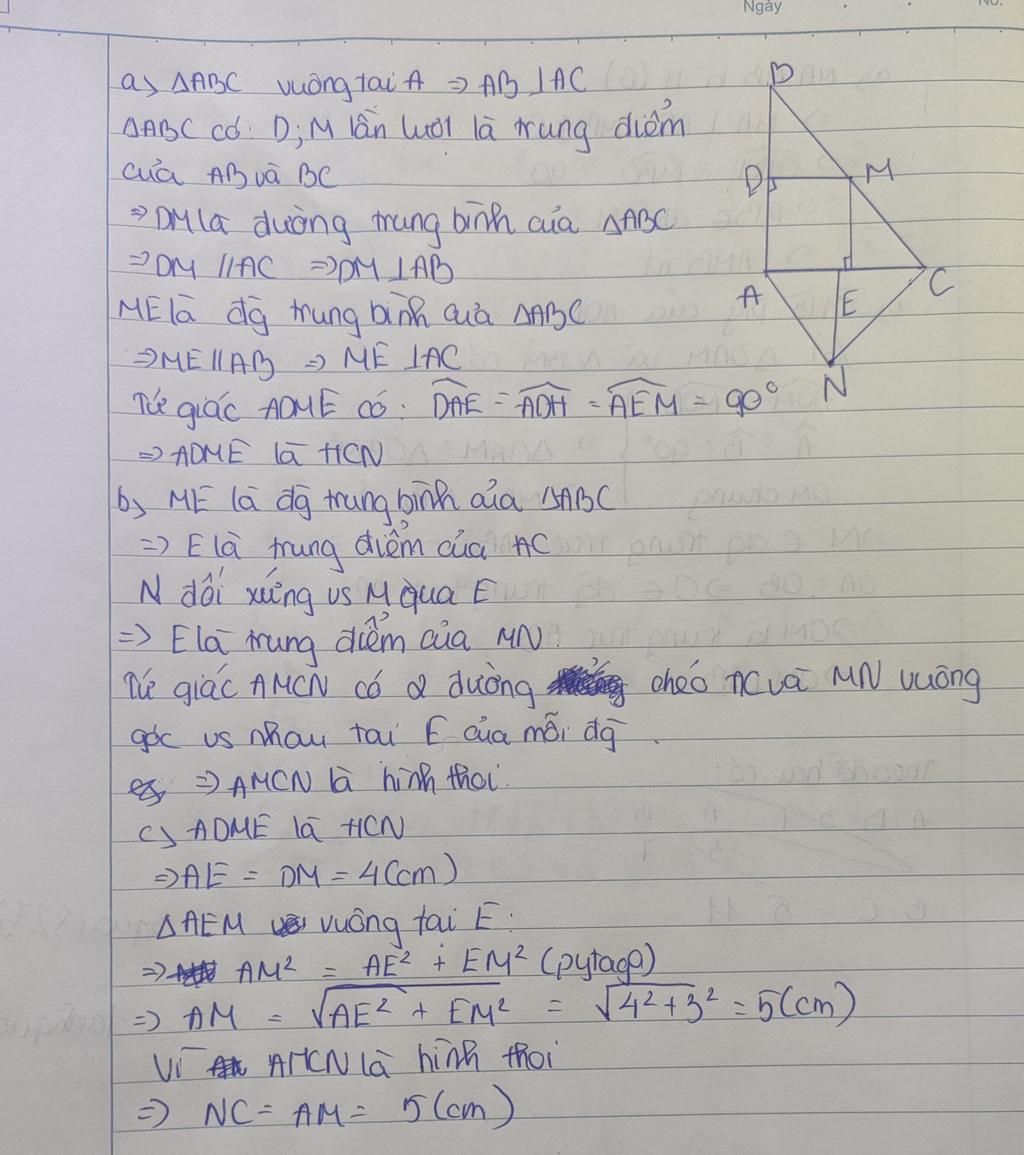 Ngày
No.
a, ΔABC vuông tại A ⇒ AB ⊥AC
ΔABC có: D; M lần lượt là trung điểm
của AB và BC
⇒ DM là đường trung bình của ΔABC
⇒ DM //AC ⇒ DM ⊥AB
ME là đg trung bình của ΔABC
⇒ ME // AB ⇒ ME ⊥AC
Tứ giác ADME có: DAE = ADM = AEM = 90°
⇒ ADME là HCN
b, ME là đg trung bình của ΔABC
=> E là trung điểm của AC
N đối xứng vs M qua E
=> E là trung điểm của MN.
Tứ giác AMCN có 2 đường chéo AC và MN vuông
góc vs nhau tại E của mỗi đg.
⇒ AMCN là hình thoi.
c, ADME là HCN
⇒ AE = DM = 4(cm)
ΔAEM vuông tại E:
⇒ AM² = AE² + EM² (pytago)
⇒ AM = √AE² + EM² = √4²+3² = 5(cm)
Vì AMCN là hình thoi
=> NC = AM = 5(cm)
B
D
M
A
E
C
N